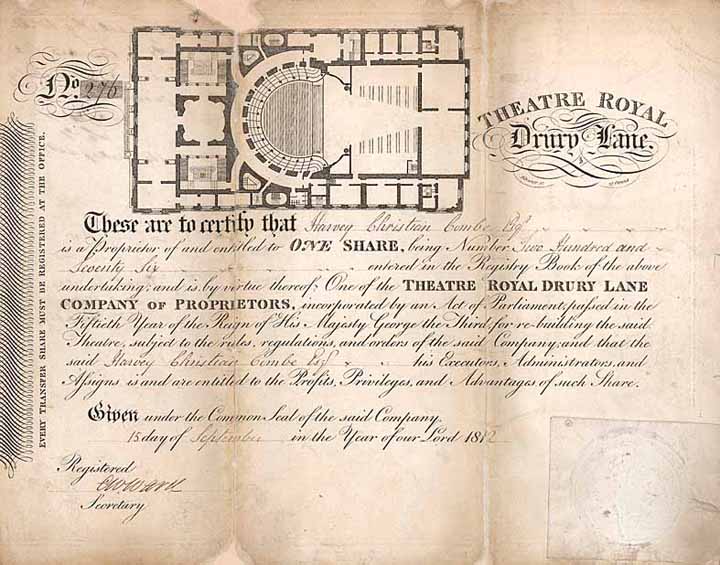 No. 276
THEATRE ROYAL
Drury Lane.
EVERY TRANSFER SHARE MUST BE REGISTERED AT THE OFFICE.
These are to certify that Harvey Christian Combe Esqr.
is a Proprietor of and entitled to ONE SHARE, being Number Two Hundred and
Seventy Six entered in the Registry Book of the above
undertaking; and is by virtue thereof; One of the THEATRE ROYAL DRURY LANE
COMPANY OF PROPRIETORS, incorporated by an Act of Parliament, passed in the
Fiftieth Year of the Reign of His Majesty George the Third, for re-building the said
Theatre, subject to the rules, regulations, and orders of the said Company, and that the
said Harvey Christian Combe Esqr. his Executors, Administrators, and
Assigns is and are entitled to the Profits, Privileges, and Advantages of such Share.
Given under the Common Seal of the said Company,
15 day of September in the Year of our Lord 1812
Registered
Secretary